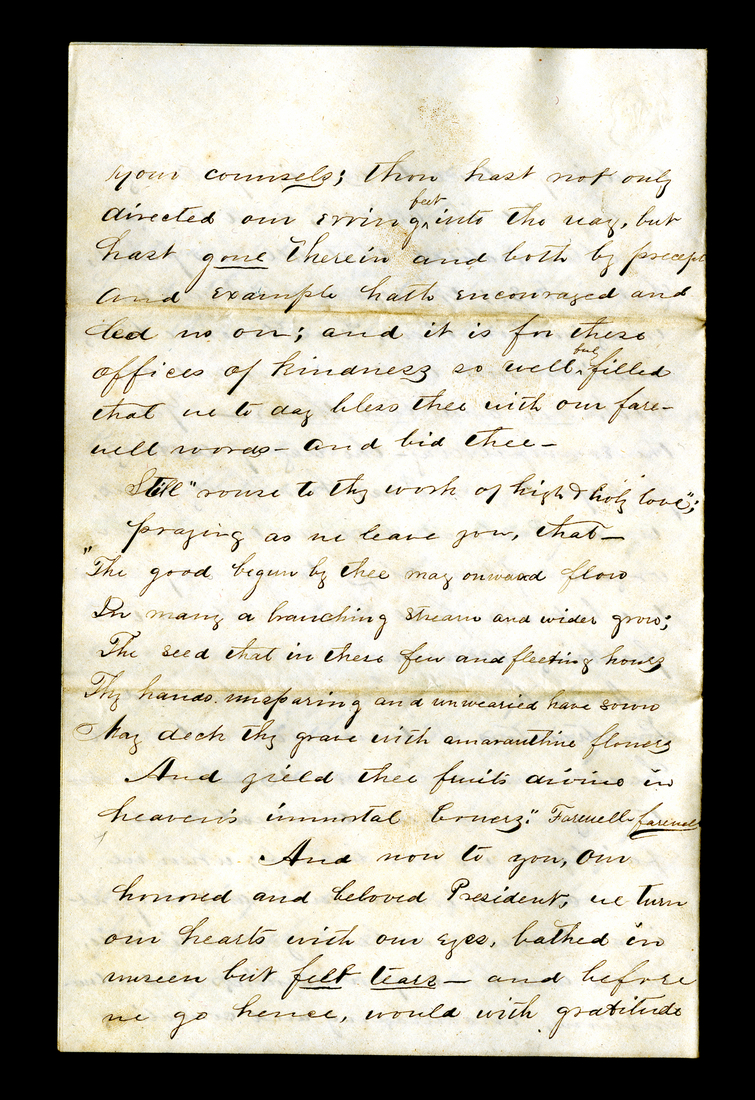 your counsels; thou hast not only
directed our erring feet into the way, but
hast gone therein and both by precept
and example hath encouraged and
led us on; and it is for these
offices of kindness so well filled
that we to day bless thee with our fare-
well words - and bid thee -
Still "rouse to thy work of high & holy love";
praying as we leave you, that -
"The good begun by thee may onward flow
In many a branching stream and wider grow;
The seed that in these few and fleeting hours
Thy hands unsparing and unwearied have sown
May deck thy grave with amaranthine flowers
And yield thee fruits divine in
heaven's immortal bowers." Farewell farewell
And now to you, Our
honored and beloved President, we turn
our hearts with our eyes, bathed in
unseen but felt tears - and before
we go hence, would with gratitude